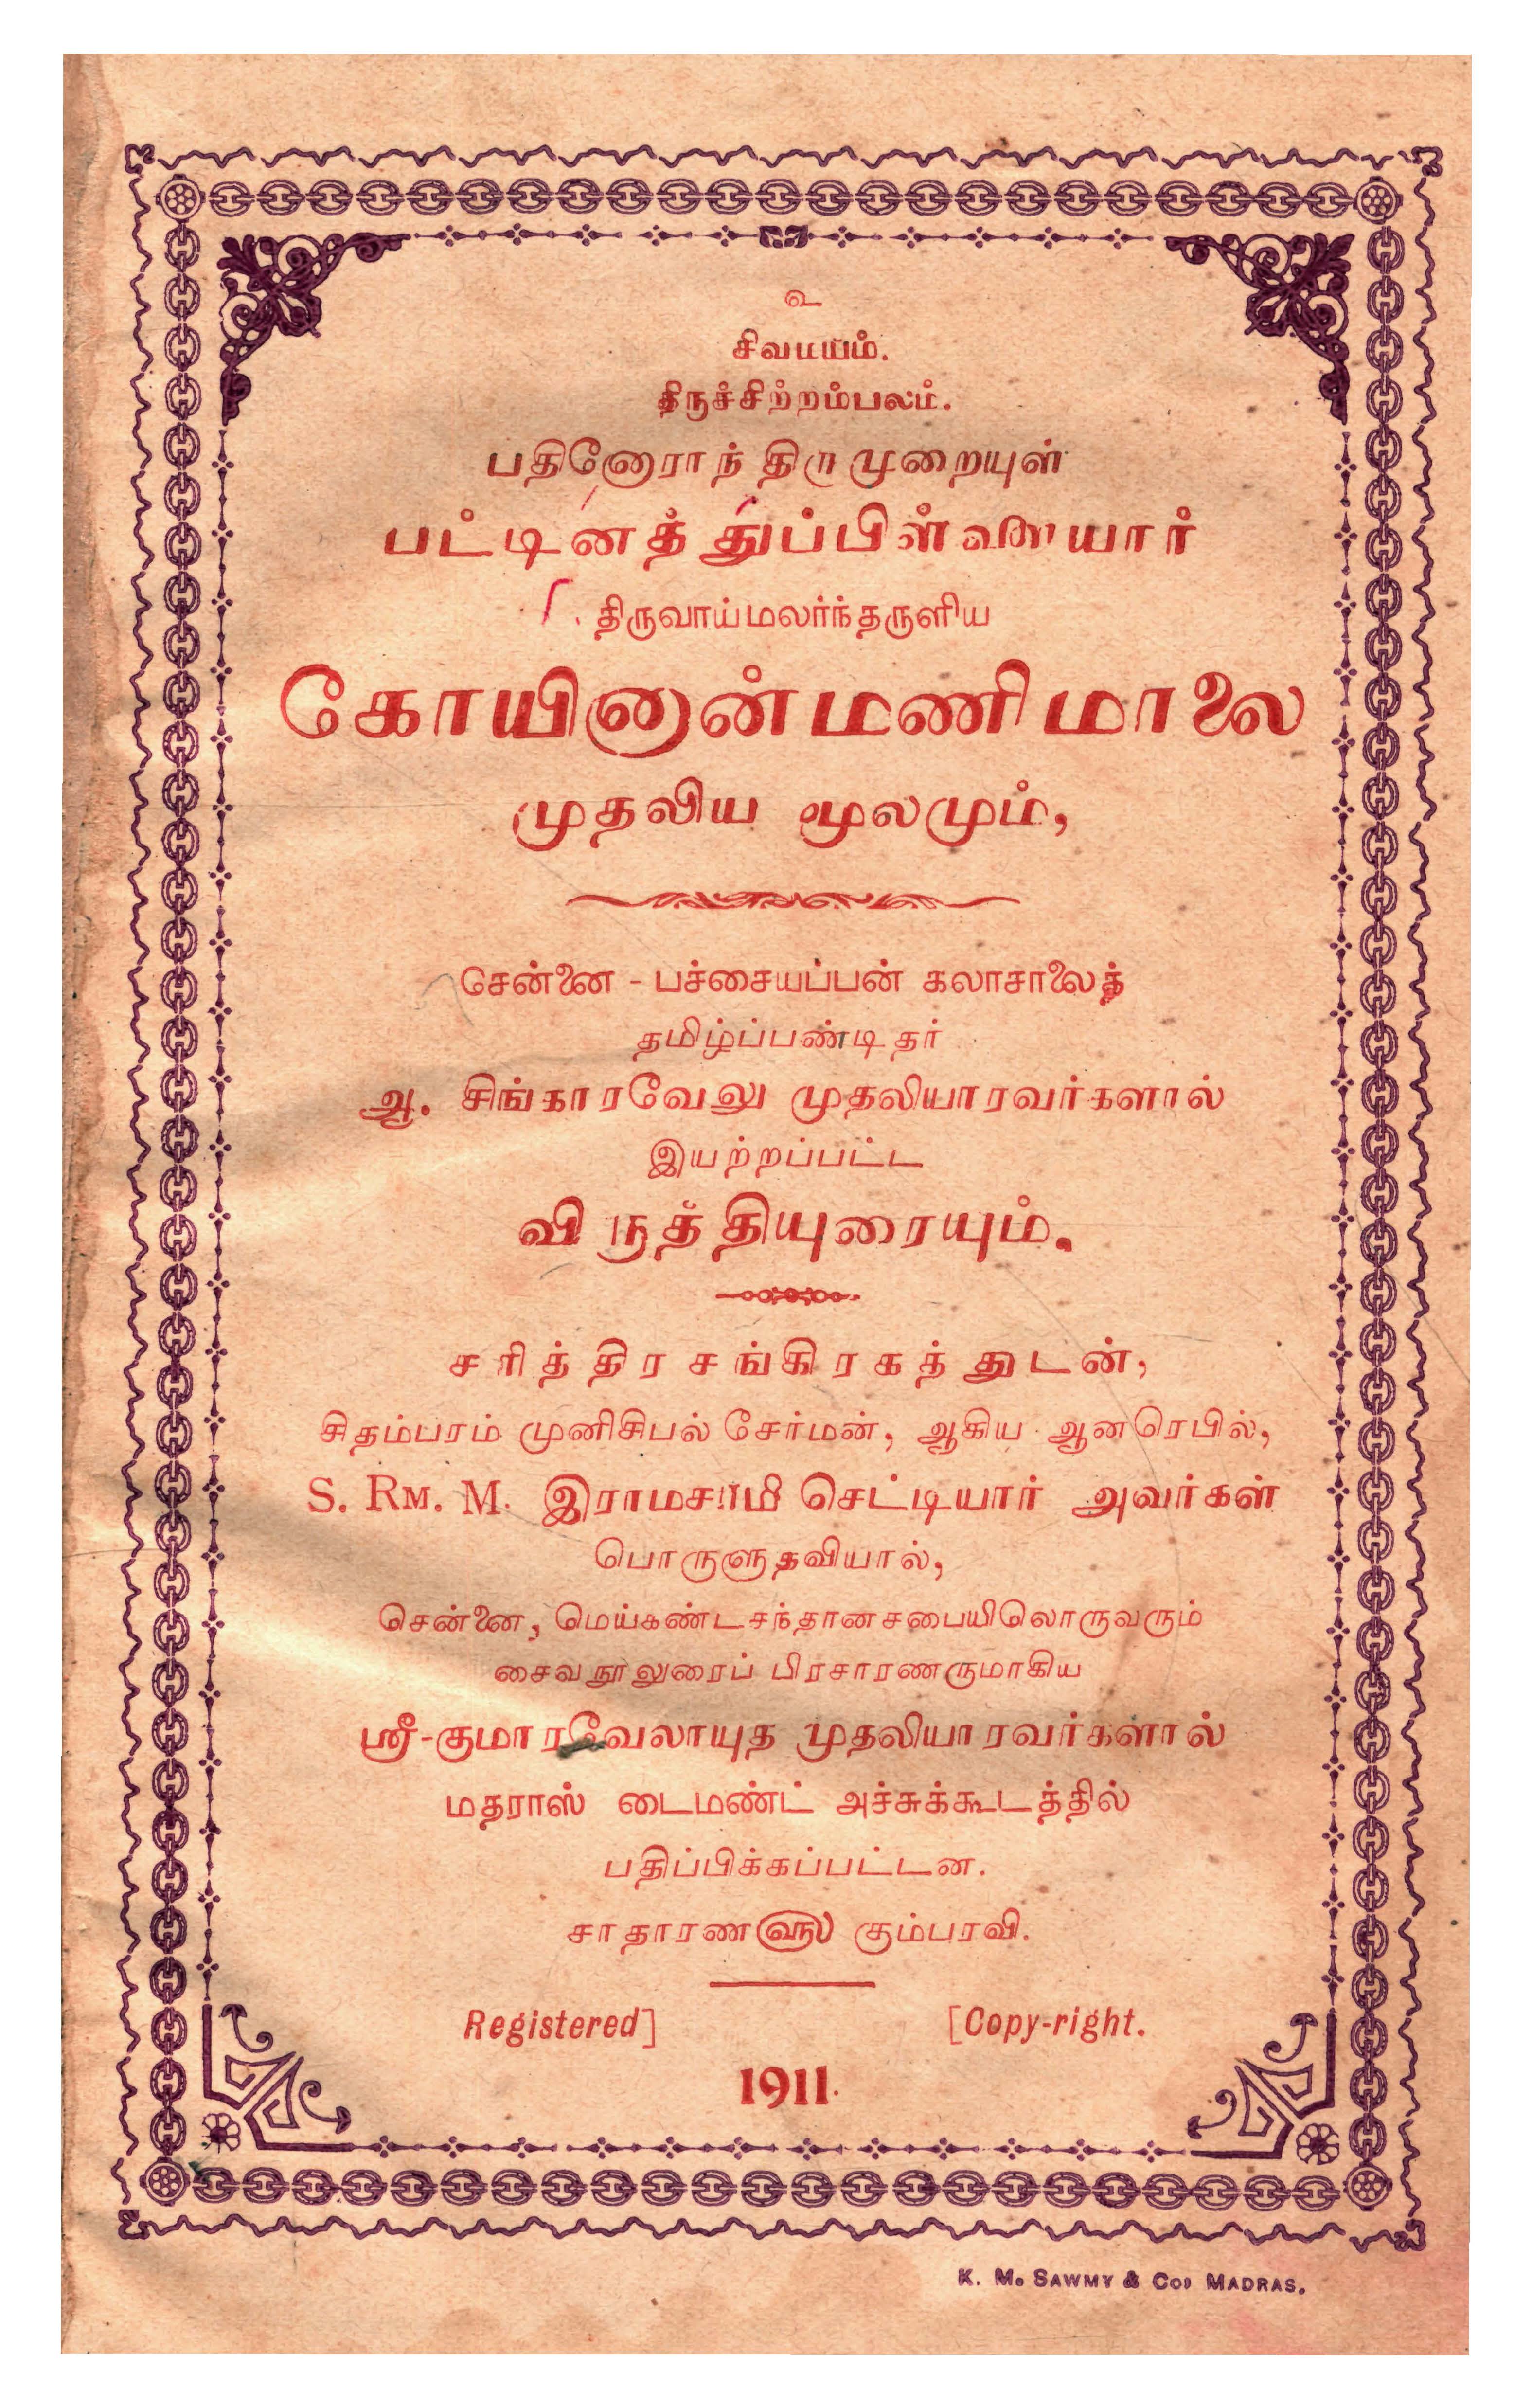 உ
சிவமயம்.
திருச்சிற்றம்பலம்.
பதினோராந் திருமுறையுள்
பட்டினத்துப்பிள்ளையார்
திருவாய்மலர்ந்தருளிய
கோயினான்மணிமாலை
முதலிய மூலமும்,
சென்னை - பச்சையப்பன் கலாசாலைத்
தமிழ்ப்பண்டிதர்
ஆ. சிங்காரவேலு முதலியாரவர்களால்
இயற்றப்பட்ட
விருத்தியுரையும்.
சரித்திரசங்கிரகத்துடன்,
சிதம்பரம் முனிசிபல் சேர்மன், ஆகிய ஆனரெபில்,
S. RM. M. இராமசாமி செட்டியார் அவர்கள்
பொருளுதவியால்,
சென்னை, மெய்கண்டசந்தானசபையிலொருவரும்
சைவநூலுரைப் பிரசாரணருமாகிய
ஸ்ரீ-குமாரவேலாயுத முதலியாரவர்களால்
மதராஸ் டைமண்ட் அச்சுக்கூடத்தில்
பதிப்பிக்கப்பட்டன.
சாதாரண௵ கும்பரவி.
Registered] [Copy-right.
1911.
K. M. SAWMY & CO, MADRAS.